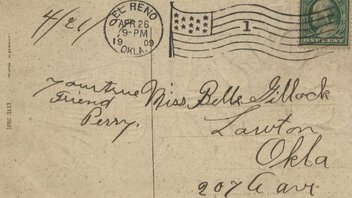 4/21
EL RENO
APR 26
9-PM
1909
OKLA.
1
ONE CENT
Your true
Friend
Perry.
Miss Belle Gillock
Lawton
Okla
207 A ave